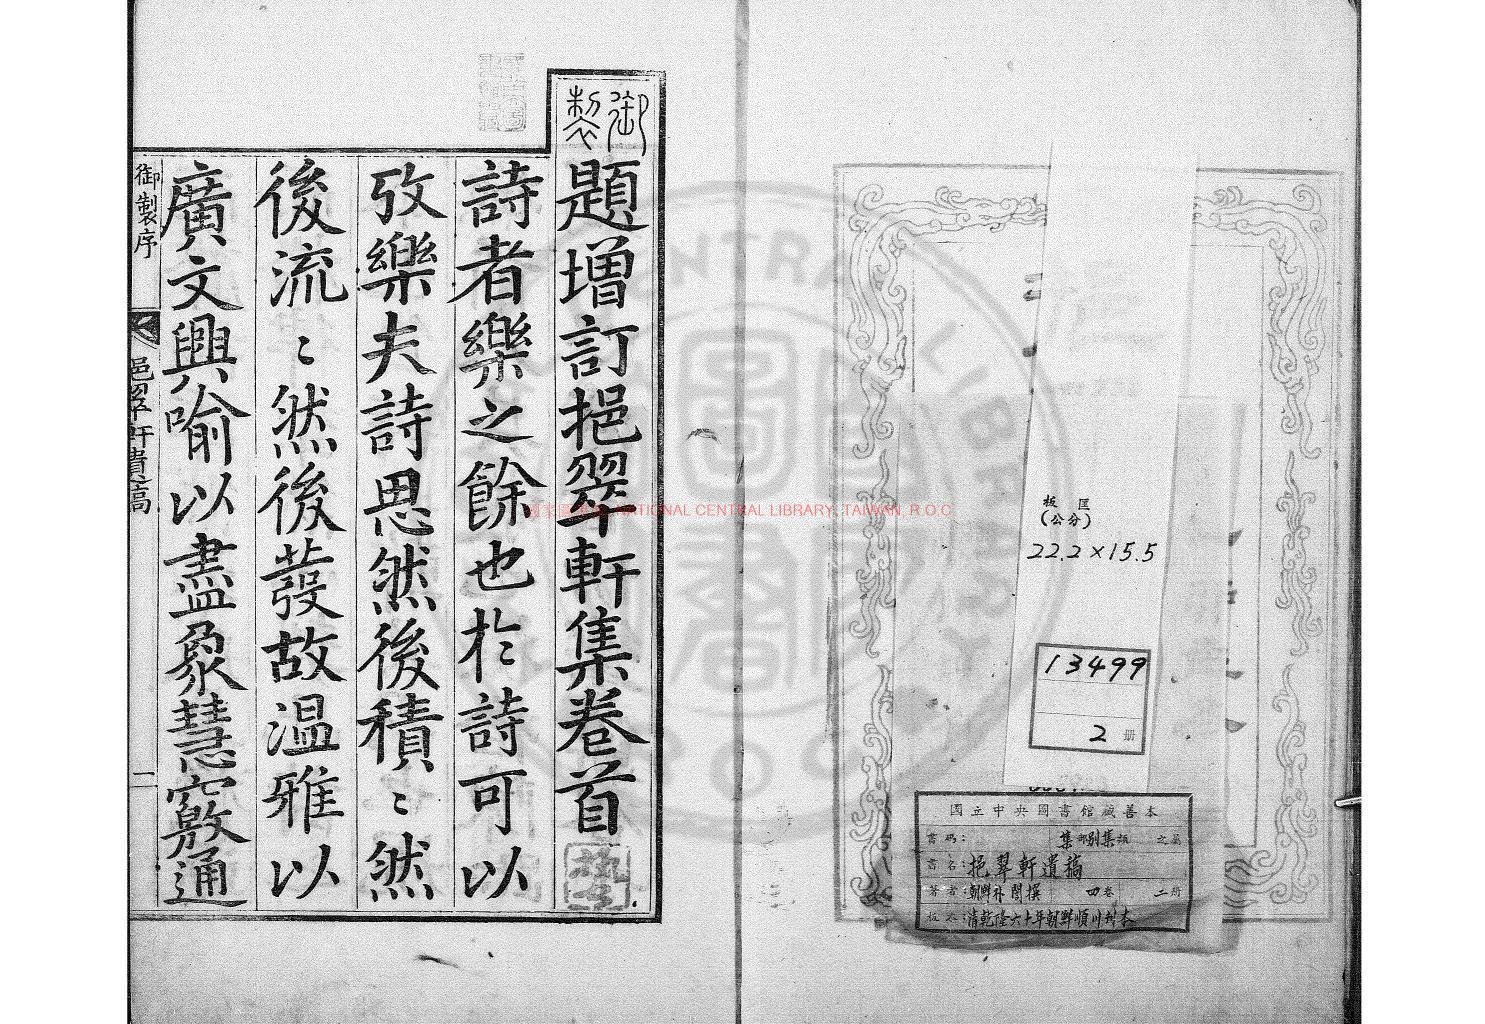 御製
題增訂挹翠軒集卷首
詩者樂之餘也於詩可以
攷樂夫詩思然後積〻然
後流〻然後發故溫雅以
廣文興喻以盡象慧竅通
御製序
挹翠軒遺稿
一
NATIONAL CENTRAL LIBRARY, TAIWAN, R.O.C
板匡
(公分)
22.2×15.5
13499
2 册
國立中央圖書館藏善本
書碼: 集部別集類 之屬
書名:挹翠軒遺稿
著者:朝鮮朴誾撰 四卷 二冊
板本:清乾隆六十年朝鮮順川刊本